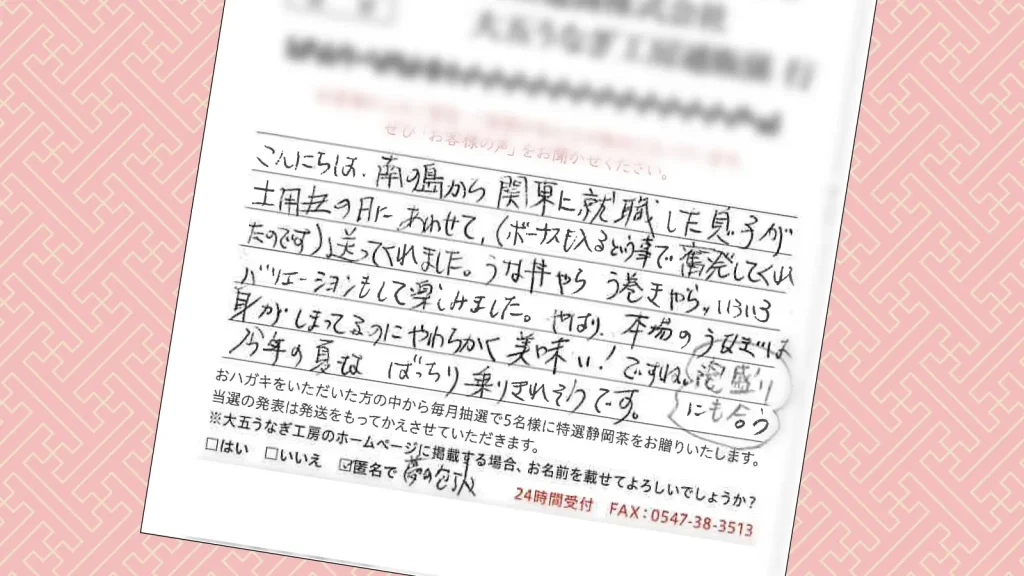 大五うなぎ工房通販係 行
ぜひ「お客様の声」をお聞かせください。
こんにちは、南の島から関東に就職した息子が
土用丑の日にあわせて、(ボーナスも入るという事で奮発してくれ
たのです)送ってくれました。うな丼やら う巻きやら、いろいろ
バリエーションもして楽しみました。やはり、本場のうなぎは
身がしまってるのにやわらかく美味い!ですね。泡盛り
にも合う
今年の夏は ばっちり乗りきれそうです。
おハガキをいただいた方の中から毎月抽選で5名様に特選静岡茶をお贈りいたします。
当選の発表は発送をもってかえさせていただきます。
※大五うなぎ工房のホームページに掲載する場合、お名前を載せてよろしいでしょうか?
□はい □いいえ ☑匿名で
24時間受付 FAX:0547-38-3513